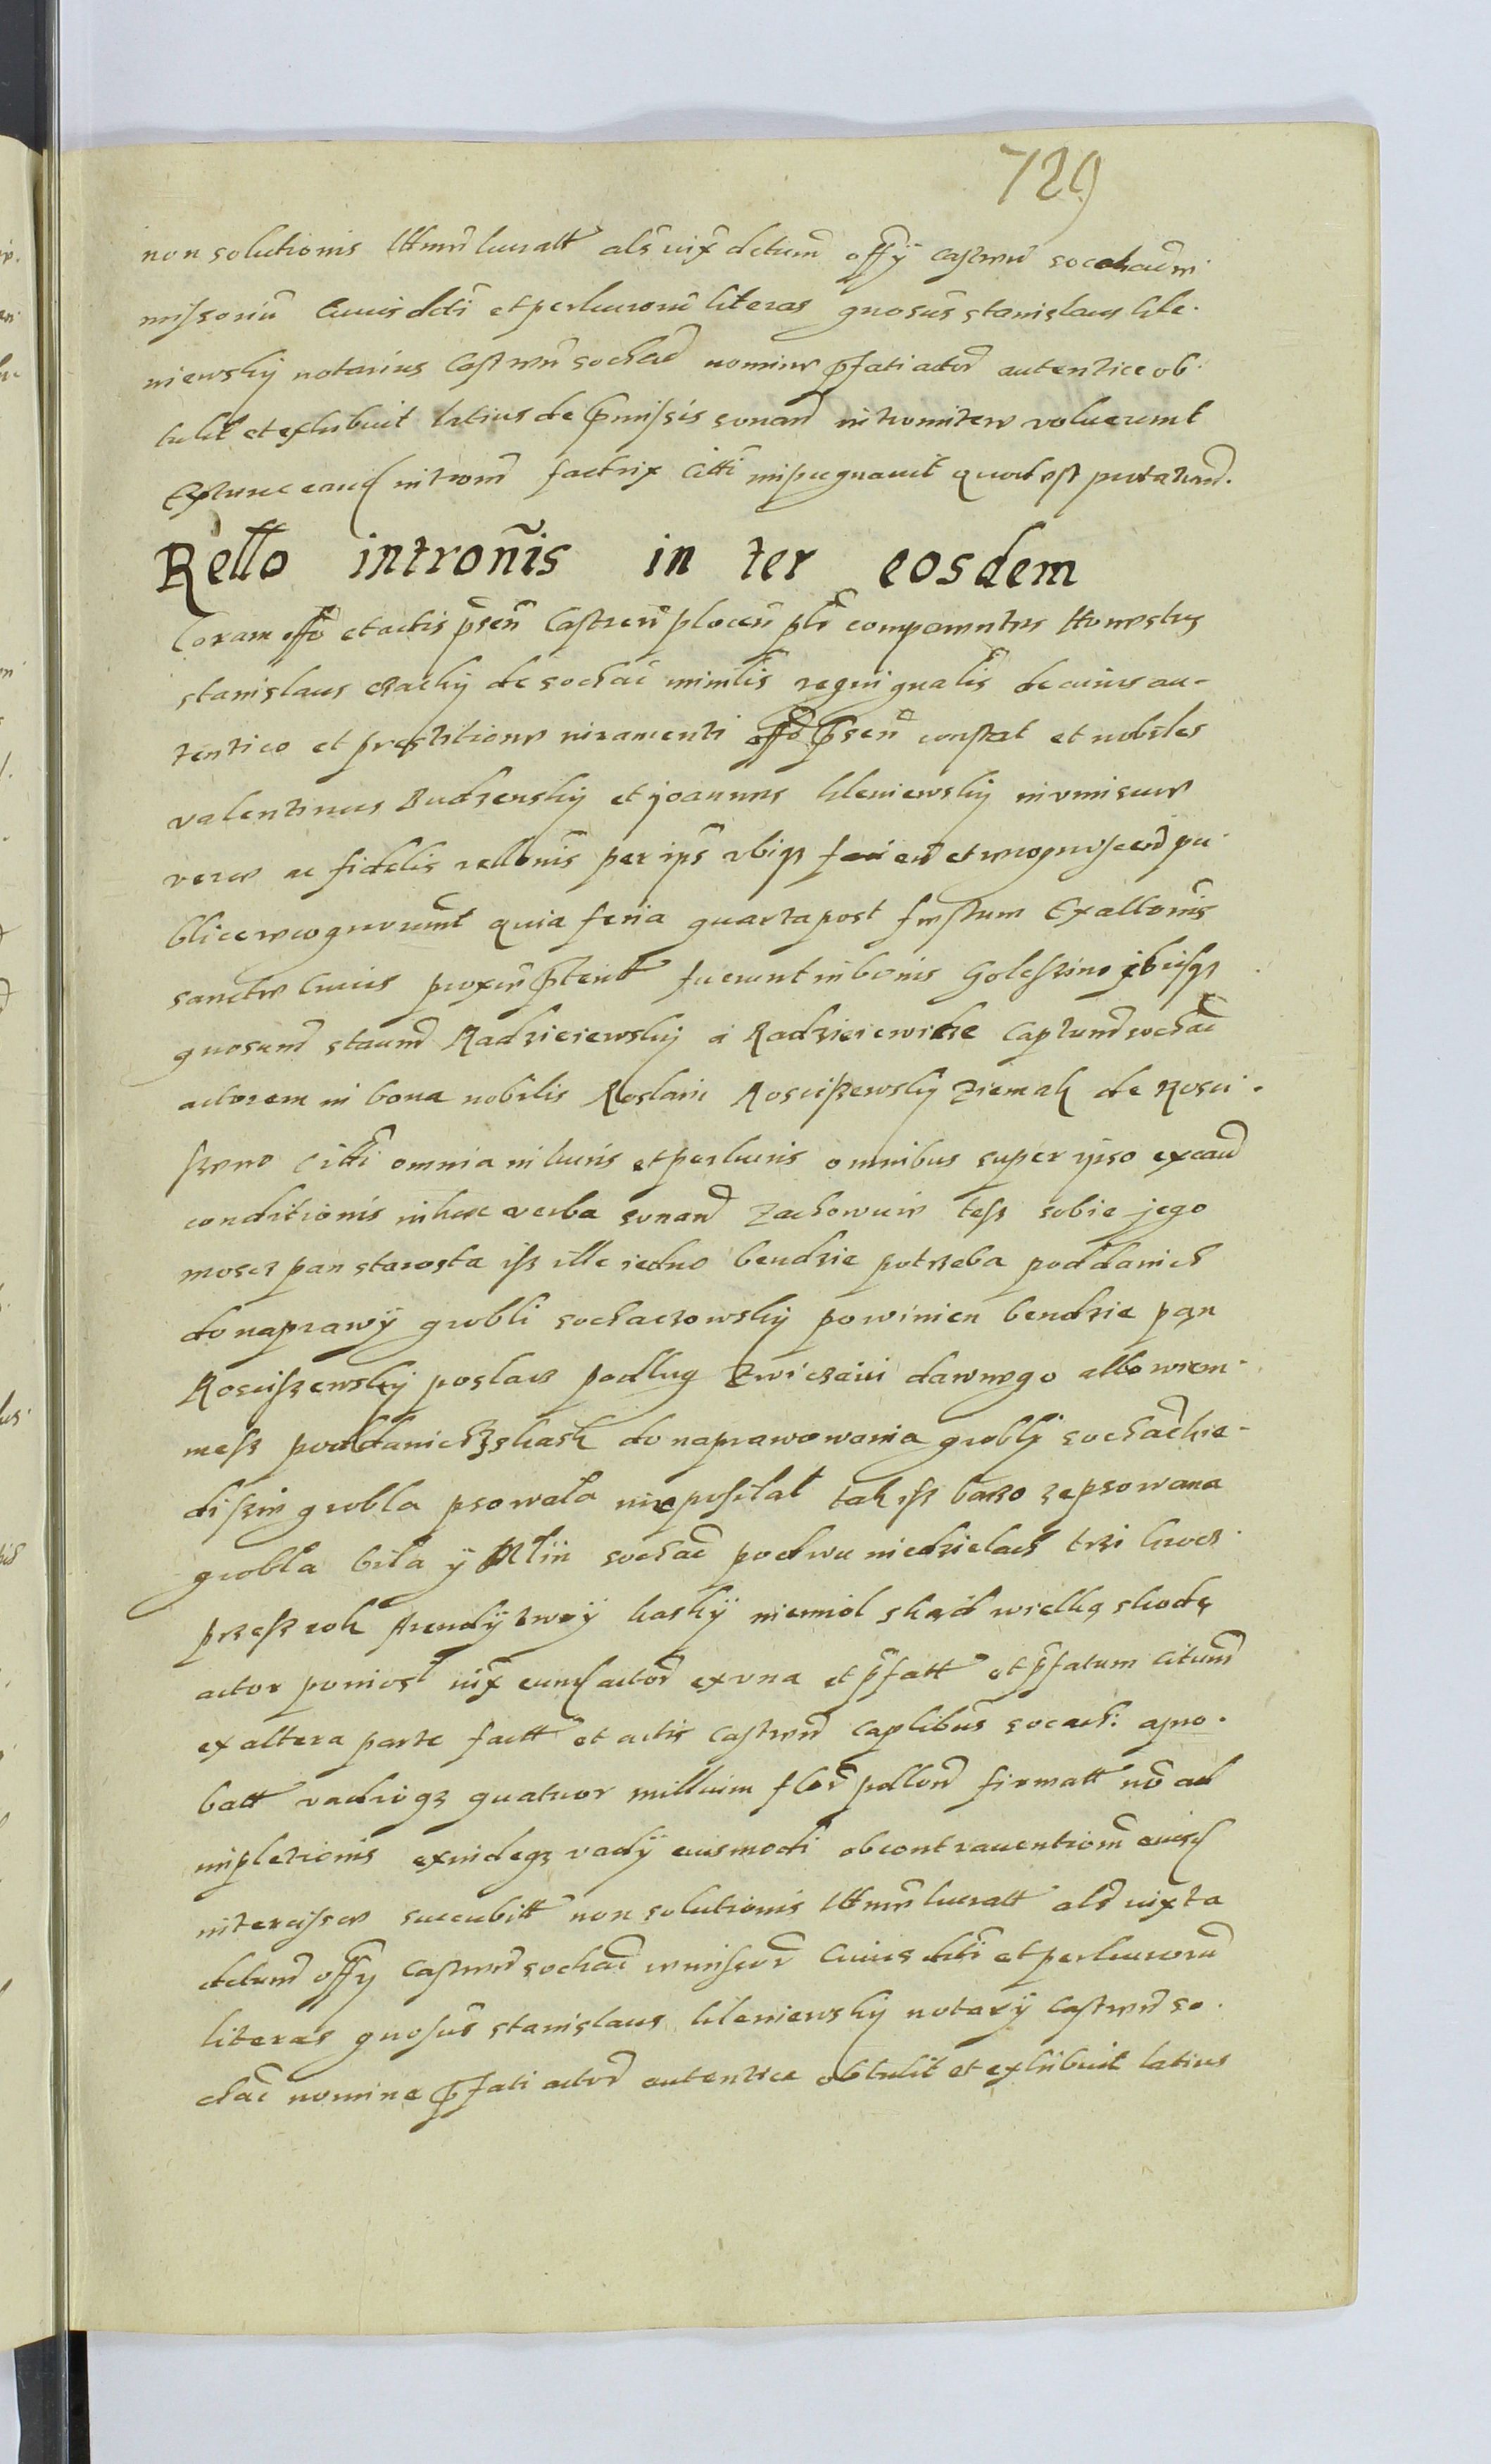 729
non solutionis lttmẽ lucratt als̃ iux̃ dctum̃ offÿ castreñ sochacẽ re-
missoriũ Cuius dcti et perlucrorũ literas gnosus̃ stanislaus kle-
niewskij notarius Castreñ sochac̃ nomine p̃fati actor̃ autentice ob-
tulit et exhibuit latius de p̃missis sonan̄ intromitere voluerunt
Extunc eand introm̃ factrix Citti impugnauit quod est protatum̃.
Rello intron̄is in ter eosdem
Coram offo et actis p̃sen̄ Castren̄ plocen̄ plr̃ comparentes Honestus
stanislaus czacky de sochac̃ minilis regni gnalis̃ de cuius au-
tentico et prestitione iuramenti offo p̃sen̄ constat et nobiles
valentinus Budzenskij et joannes kleniewskij in vim suae
verae ac fidelis rellonis̃ per ips̃ ubiqz faciend̃ et recognoscend̃ pu-
blice recognoverunt̃ quia feria quarta post festum Exallonis̃
sanctae Crucis proxim̃ p̃terit̃ fuerunt in bonis Goleszino ibiqz
gnosum̃ staum̃ Radzieiewskij a Radzieiewicze Captum̃ sochac̃
actorem in bona nobilis Roslani Rosciszewskÿ Ziemak de Rosci-
szeno Citti omnia in lucris et perlucris omnibus super ipso ex eand̃
conditionis in haec verba sonan̄ Zachowuie tesz sobie jego
moscz pan starosta isz ille iedno bendzie potrzeba poddanich
do naprawÿ grobli sochaczowskij powinien bendzie pan
Rosciszewskÿ poslacz podlug zwiczaiu dawnego albowiem
mesz poddanich skask do naprawowania groblÿ sochac̃kie
diszie grobla psowala nieposilal tak isz barzo zepsowana
grobla bila ÿ Mlin sochac̃ po dwu niedzielach trzi kroc
przesz rok Arendÿ swoÿ kaskÿ niemiol skąd wielką skodę
actor poniosl iux̃ eund actor̃ ex vna et p̃fatt̃ et p̃fatum citum̃
ex altera parte factt̃ et actis castren̄ caplibus̃ socach: apro-
batt̃ vadioqz quatuor millium flor̃ pollon̄ firmatt̃ nõ ad
impletionis exindeqz vadÿ eiusmodi ob contrauentionem̃ eiusd
intercisae succubitt̃ non solutionis lttmẽ lucratt̃ als̃ iuxta
dctum̃ offÿ castren̄ sochac̃ remissor̃ Cuius dcti et perlucrorum̃
literas gnosus̃ stanislaus kleniewskij notarÿ castren̄ so-
chac̃ nomine p̃fati actor̃ autentice obtulit et exhibuit latius